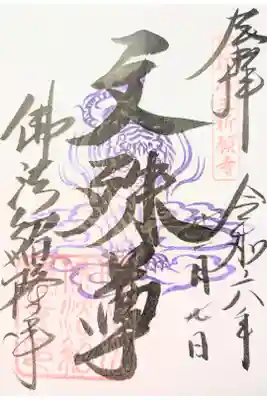 奉拝
令和六年
月九日
祈願寺
文殊尊
佛法紹隆寺